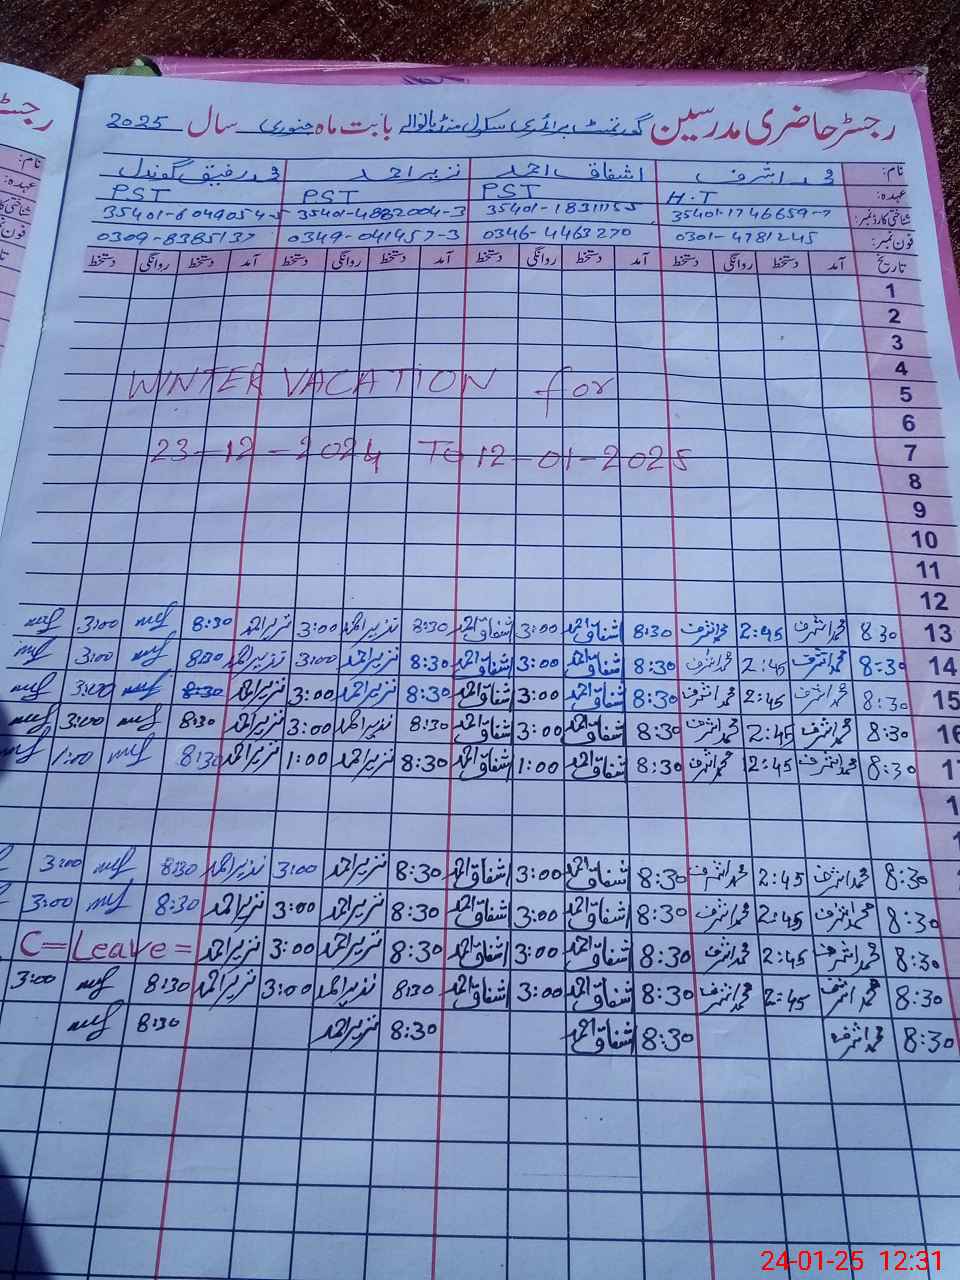 رجسٹر حاضری مدرسین گورنمنٹ پرائمری سکول بابت ماہ جنوری سال 2025
نام: محمد اشرف اشفاق احمد نزیر احمد محمد رفیق گوندل
عہدہ: H.T PST PST PST
شناختی کارڈ نمبر: 35401-1746659-7 35401-1831155 35401-4882004-3 35401-6049054-5
فون نمبر: 0301-4781245 0346-4463270 0349-041457-3 0309-8385137
تاریخ آمد دستخط روانگی دستخط آمد دستخط روانگی دستخط آمد دستخط روانگی دستخط آمد دستخط روانگی دستخط
1
2
3
4
WINTER VACATION for
5
6
23-12-2024 To 12-01-2025
7
8
9
10
11
12
13 8:30 محمد اشرف 2:45 محمد اشرف 8:30 اشفاق احمد 3:00 اشفاق احمد 8:30 نزیر احمد 3:00 نزیر احمد 8:30 3:00
14 8:30 محمد اشرف 2:45 محمد اشرف 8:30 اشفاق احمد 3:00 اشفاق احمد 8:30 نزیر احمد 3:00 نزیر احمد 8:30 3:00
15 8:30 محمد اشرف 2:45 محمد اشرف 8:30 اشفاق احمد 3:00 اشفاق احمد 8:30 نزیر احمد 3:00 نزیر احمد 8:30 3:00
16 8:30 محمد اشرف 2:45 محمد اشرف 8:30 اشفاق احمد 3:00 اشفاق احمد 8:30 نزیر احمد 3:00 نزیر احمد 8:30 3:00
17 8:30 محمد اشرف 2:45 محمد اشرف 8:30 اشفاق احمد 1:00 اشفاق احمد 8:30 نزیر احمد 1:00 نزیر احمد 8:30 1:00
8:30 محمد اشرف 2:45 محمد اشرف 8:30 اشفاق احمد 3:00 اشفاق احمد 8:30 نزیر احمد 3:00 نزیر احمد 8:30 3:00
8:30 محمد اشرف 2:45 محمد اشرف 8:30 اشفاق احمد 3:00 اشفاق احمد 8:30 نزیر احمد 3:00 نزیر احمد 8:30 3:00
8:30 محمد اشرف 2:45 محمد اشرف 8:30 اشفاق احمد 3:00 اشفاق احمد 8:30 نزیر احمد 3:00 نزیر احمد C=Leave=
8:30 محمد اشرف 2:45 محمد اشرف 8:30 اشفاق احمد 3:00 اشفاق احمد 8:30 نزیر احمد 3:00 نزیر احمد 8:30 3:00
8:30 محمد اشرف 8:30 اشفاق احمد 8:30 نزیر احمد 8:30
24-01-25 12:31